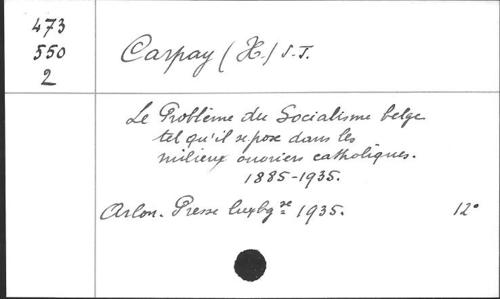 473
550
2
Carpay (H.) S.J.
Le Problème du Socialisme belge
tel qu'il se pose dans les
milieux ouvriers catholiques.
1885-1935.
Arlon. Presse luxbgse 1935. 12°